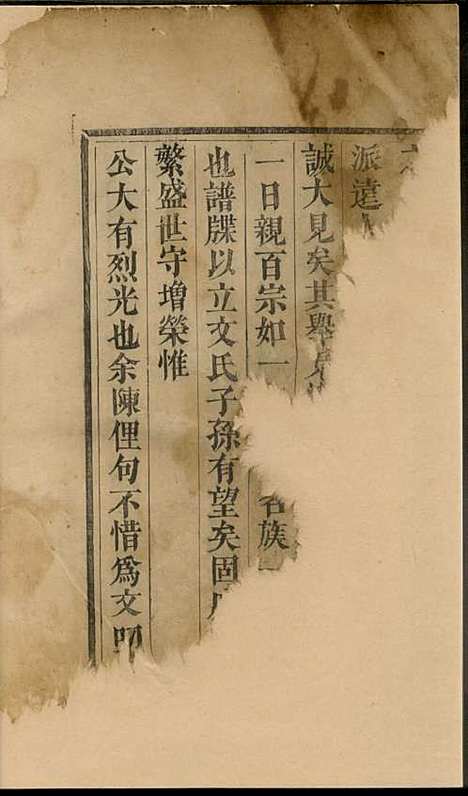 派達
誠大見矣其舉
一日親百宗如一名族
也譜牒以立文氏子孫有望矣固
繁盛世守增榮惟
公大有烈光也余陳俚句不惜爲文